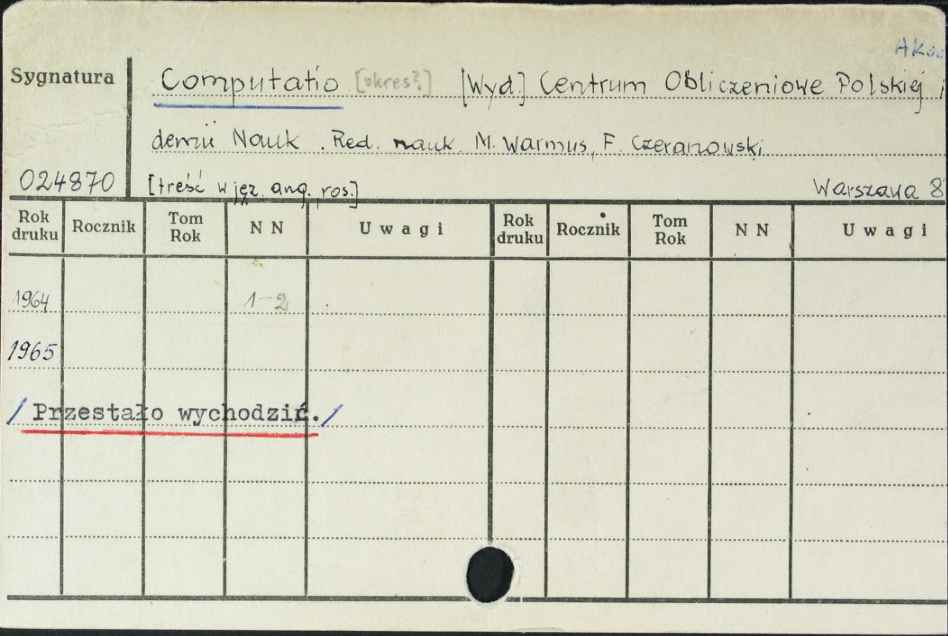 Akad
Sygnatura
Computatio [okres?] [Wyd.] Centrum Obliczeniowe Polskiej
demii Nauk. Red. nauk. M. Warmus, F. Czeranowski
024870 [treść w jęz. ang. ros.] Warszawa 8
Rok druku Rocznik Tom Rok N N Uwagi Rok druku Rocznik Tom Rok N N Uwagi
1964 1-2
1965
/ Przestało wychodzić. /